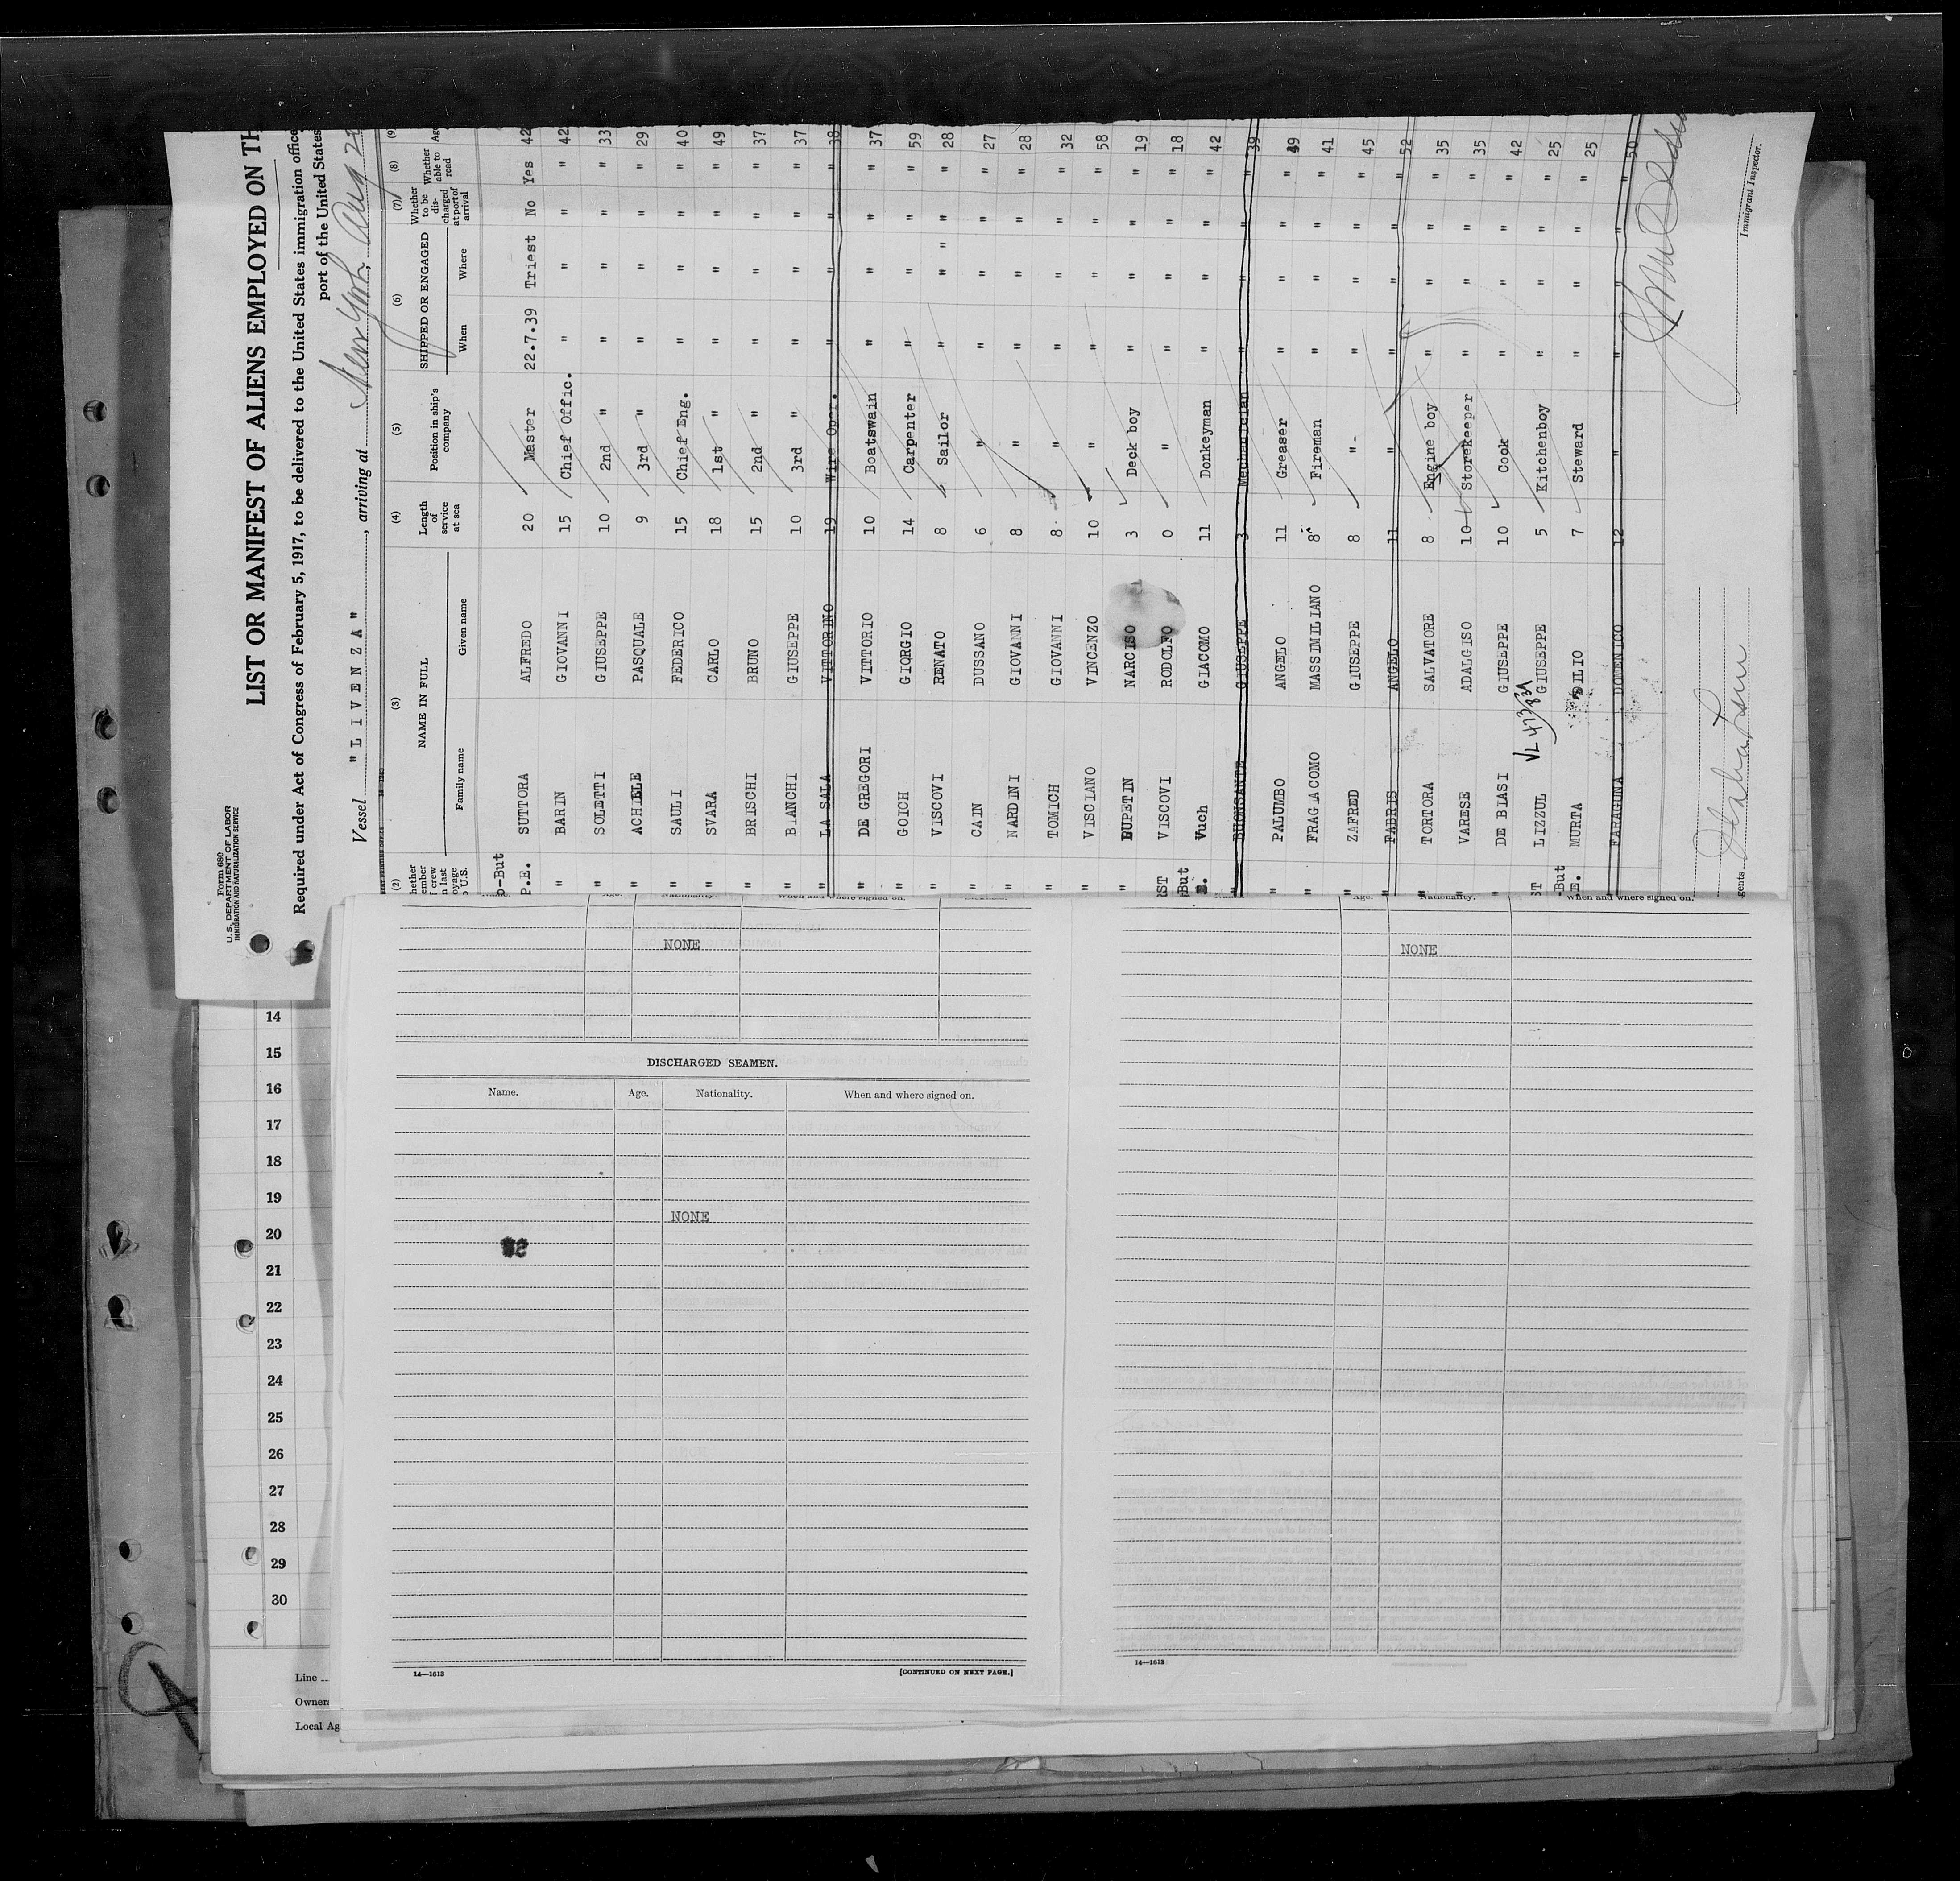 Form 680
U. S. DEPARTMENT OF LABOR
IMMIGRATION AND NATURALIZATION SERVICE
LIST OR MANIFEST OF ALIENS EMPLOYED ON TH
Required under Act of Congress of February 5, 1917, to be delivered to the United States immigration office
port of the United States
Vessel "LIVENZA", arriving at New York Aug
(2) (3) (4) (5) (6) (7) (8) (9
hether ember crew n last oyage U.S. NAME IN FULL Length of service at sea Position in ship's company SHIPPED OR ENGAGED Whether to be discharged at port of arrival Whether able to read Ag
Family name Given name When Where
o-But
P.E. SUTTORA ALFREDO 20 Master 22.7.39 Triest No Yes 42
" BARIN GIOVANNI 15 Chief Offic. " " " " 42
" SOLETTI GIUSEPPE 10 2nd " " " " " 33
" ACHIELE PASQUALE 9 3rd " " " " " 29
" SAULI FEDERICO 15 Chief Eng. " " " " 40
" SVARA CARLO 18 1st " " " " " 49
" BRISCHI BRUNO 15 2nd " " " " " 37
" BIANCHI GIUSEPPE 10 3rd " " " " " 37
" LA SALA VITTORINO 19 Wire Oper. " " " " 38
" DE GREGORI VITTORIO 10 Boatswain " " " " 37
" GOICH GIORGIO 14 Carpenter " " " " 59
" VISCOVI RENATO 8 Sailor " " " " " 28
" CAIN DUSSANO 6 " " " " " 27
" NARDINI GIOVANNI 8 " " " " " 28
" TOMICH GIOVANNI 8 " " " " " 32
" VISCIANO VINCENZO 10 " " " " " 58
" DUPETIN NARCISO 3 Deck boy " " " " 19
RST VISCOVI RODOLFO 0 " " " " " 18
But
E. Vuch GIACOMO 11 Donkeyman " " " " 42
" BUONSANTE GIUSEPPE 3 Mechanician " " " " 39
" PALUMBO ANGELO 11 Greaser " " " " 49
" FRAGIACOMO MASSIMILIANO 8 Fireman " " " " 41
" ZAFRED GIUSEPPE 8 "- " " " " 45
" FABRIS ANGELO 11 " " " " " 52
" TORTORA SALVATORE 8 Engine boy " " " " 35
" VARESE ADALGISO 10 Storekeeper " " " " 35
" DE BIASI GIUSEPPE 10 Cook " " " " 42
ST LIZZUL GIUSEPPE 5 Kitchenboy " " " " 25
-But
E. MURTA DILIO 7 Steward " " " " 25
FARAGUNA DOMENICO 12 " " " " " 50
gents
Immigrant Inspector.
14
15
16
17
18
19
20
21
22
23
24
25
26
27
28
29
30
Line
Owners
Local Ag
Age. Nationality. When and where signed on.
NONE
DISCHARGED SEAMEN.
Name. Age. Nationality. When and where signed on.
NONE
14—1613 [CONTINUED ON NEXT PAGE.]
Age. Nationality. When and where signed on.
NONE
14—1613